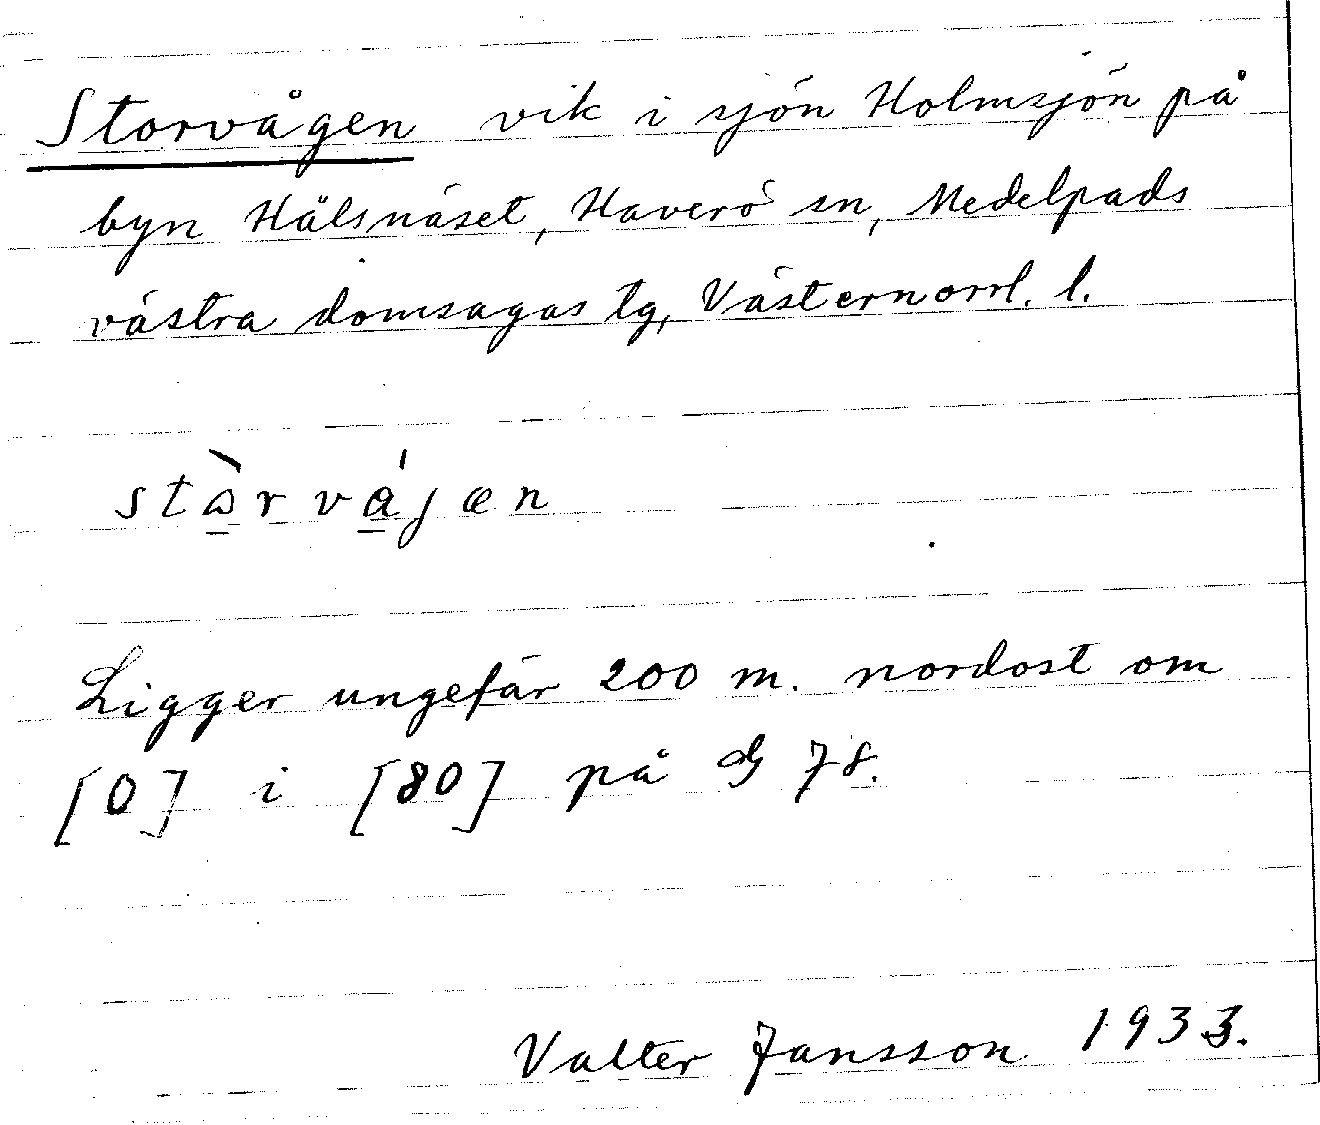 Storvågen vik i sjön Holmsjön på
byn Hälsnäset, Haverö sn, Medelpads
västra domsagas tg, Västernorrl. l.
Ligger ungefär 200 m. nordost om
[0] i [80] på G 78.
Valter Jansson 1933.